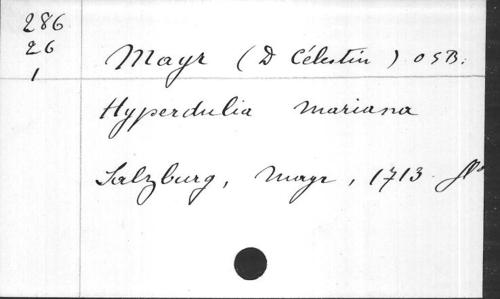 286
26
1
Mayr (D Célestin) OSB.
Hyperdulia Mariana
Salzburg, Mayr, 1713.